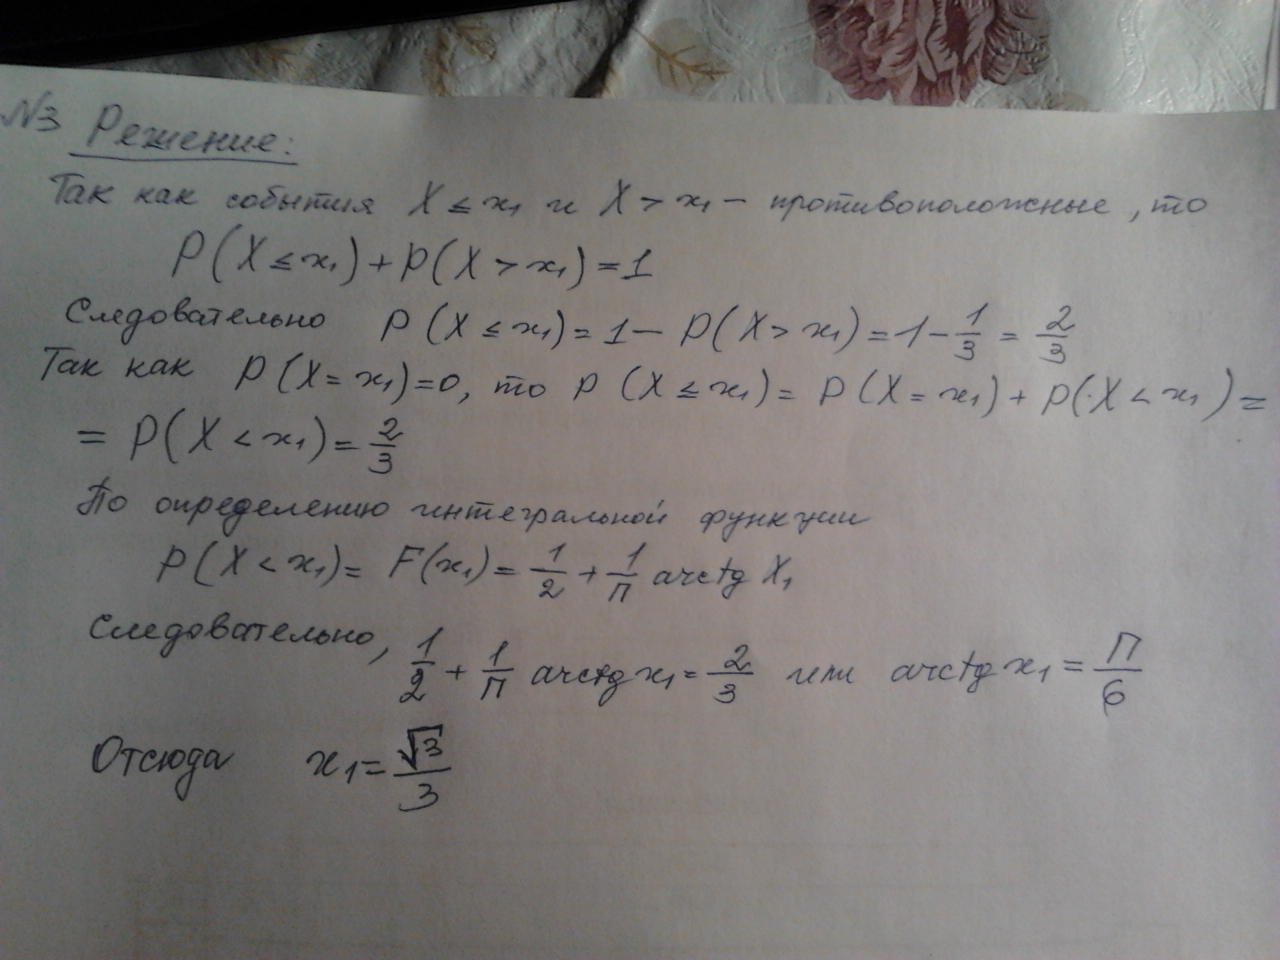 №3 Решение:
Так как события X ≤ x₁ и X > x₁ – противоположные, то
P(X ≤ x₁) + P(X > x₁) = 1
Следовательно P(X ≤ x₁) = 1 – P(X > x₁) = 1 – 1/3 = 2/3
Так как P(X = x₁) = 0, то P(X ≤ x₁) = P(X = x₁) + P(X < x₁) =
= P(X < x₁) = 2/3
По определению интегральной функции
P(X < x₁) = F(x₁) = 1/2 + 1/π arctg X₁
Следовательно, 1/2 + 1/π arctg x₁ = 2/3 или arctg x₁ = π/6
Отсюда x₁ = √3/3